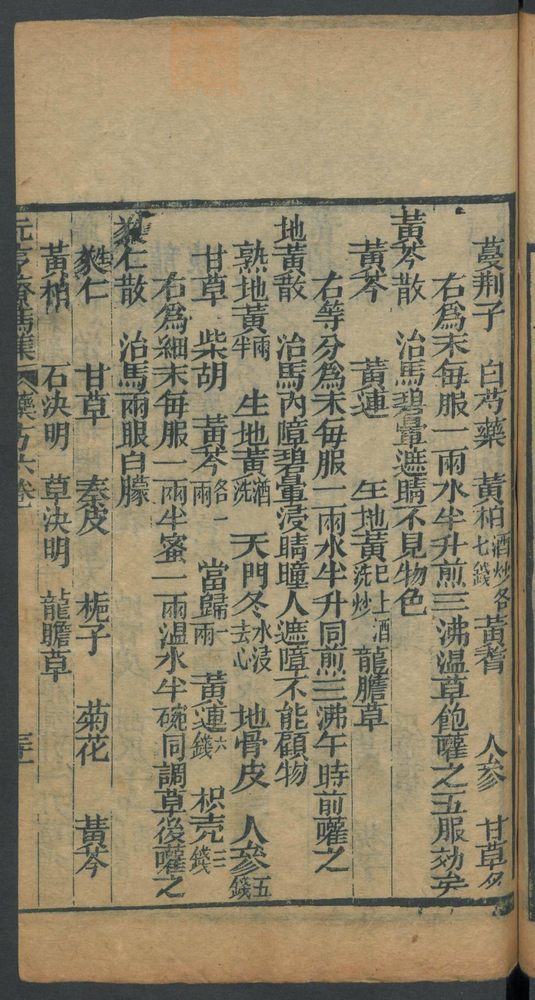 蔓荆子 白芍藥 黄柏酒炒各七錢 黄耆 人參 甘草各
右爲末每服一兩水半升煎三沸温草飽嚾之五服効矣
黄芩散 治馬碧暈遮睛不見物色
黄芩 黄連 生地黄已上酒洗炒 龍膽草
右等分爲末每服一兩水半升同煎三沸午時前嚾之
地黄散 治馬內障碧暈浸睛瞳人遮障不能顧物
熟地黄半兩 生地黄酒洗 天門冬水浸去心 地骨皮 人參五錢
甘草 柴胡 黄芩各一兩 當歸一兩 黄連六錢 枳壳三錢
右爲細末每服一兩半蜜一兩温水半碗同調草後嚾之
蕤仁散 治馬兩眼白朦
蕤仁 甘草 秦皮 梔子 菊花 黄芩
黄柏 石決明 草決明 龍膽草
元亨療馬集 藥方六卷